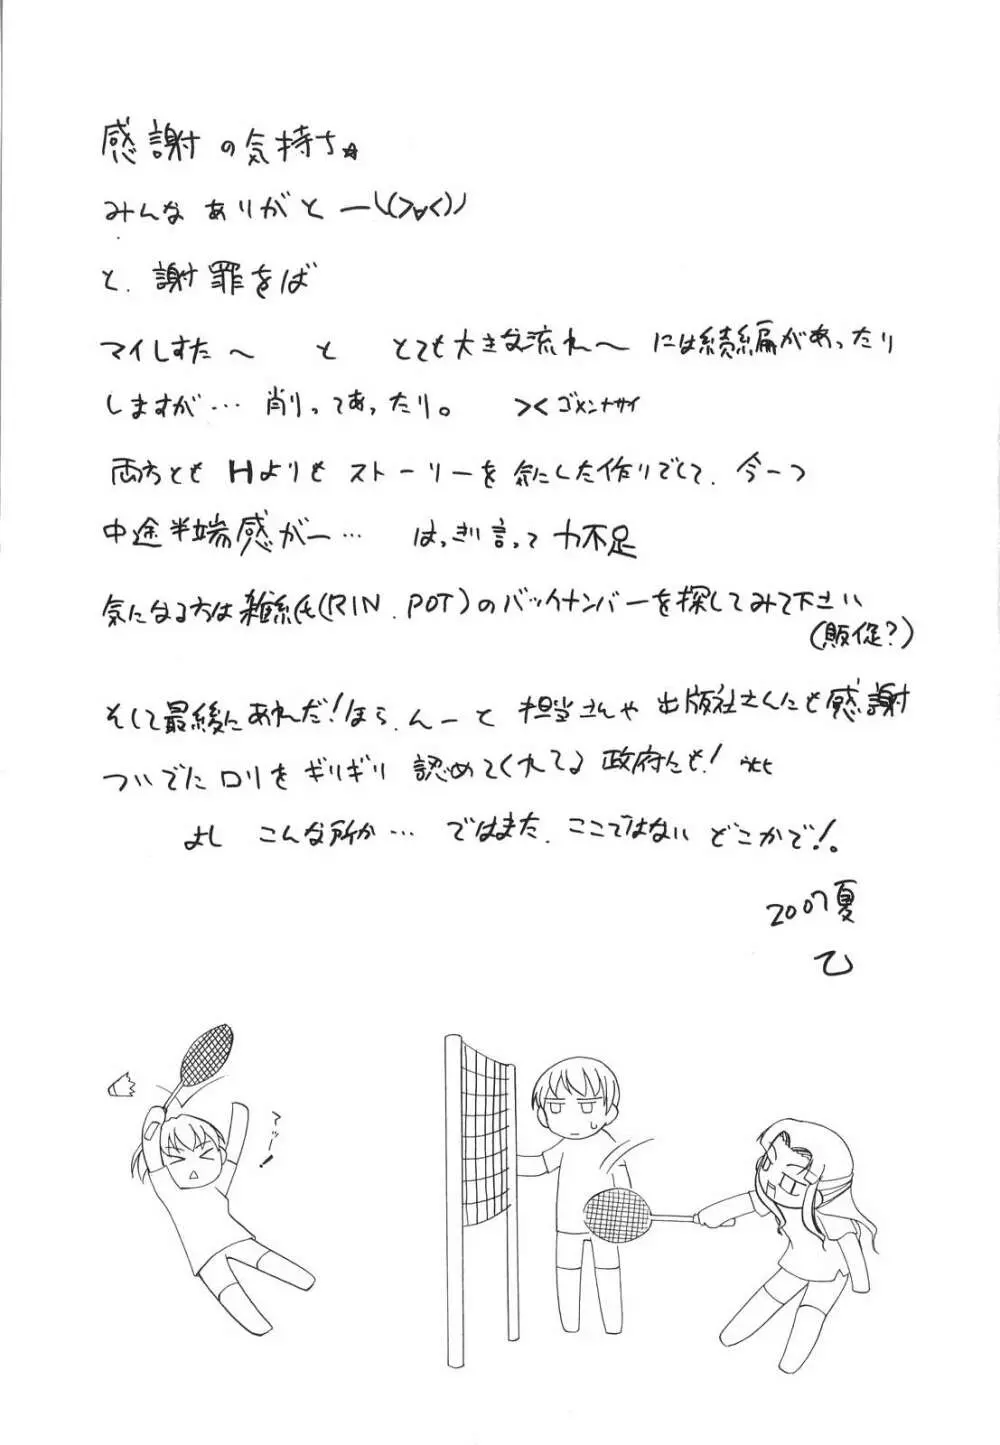 感謝の気持ち☆
みんな ありがとー\(>∀<)ノ
と、謝罪をば
マイしすた～ と とても大きな流れ～ には続編があったり
しますが… 削ってあったり。 >< ゴメンナサイ
両方とも Hよりも ストーリーを 気にした作りでして、今一つ
中途半端感がー… はっきり言って 力不足
気になる方は雑誌(RIN、POT)のバックナンバーを探してみて下さい
(販促?)
そして最後にあれだ!ほら、んーと 担当さんや 出版社さんにも感謝
ついでに ロリを ギリギリ 認めてくれてる 政府にも!
よし こんな所か… ではまた、ここではない どこかで!。
2007夏
乙
てぃー!